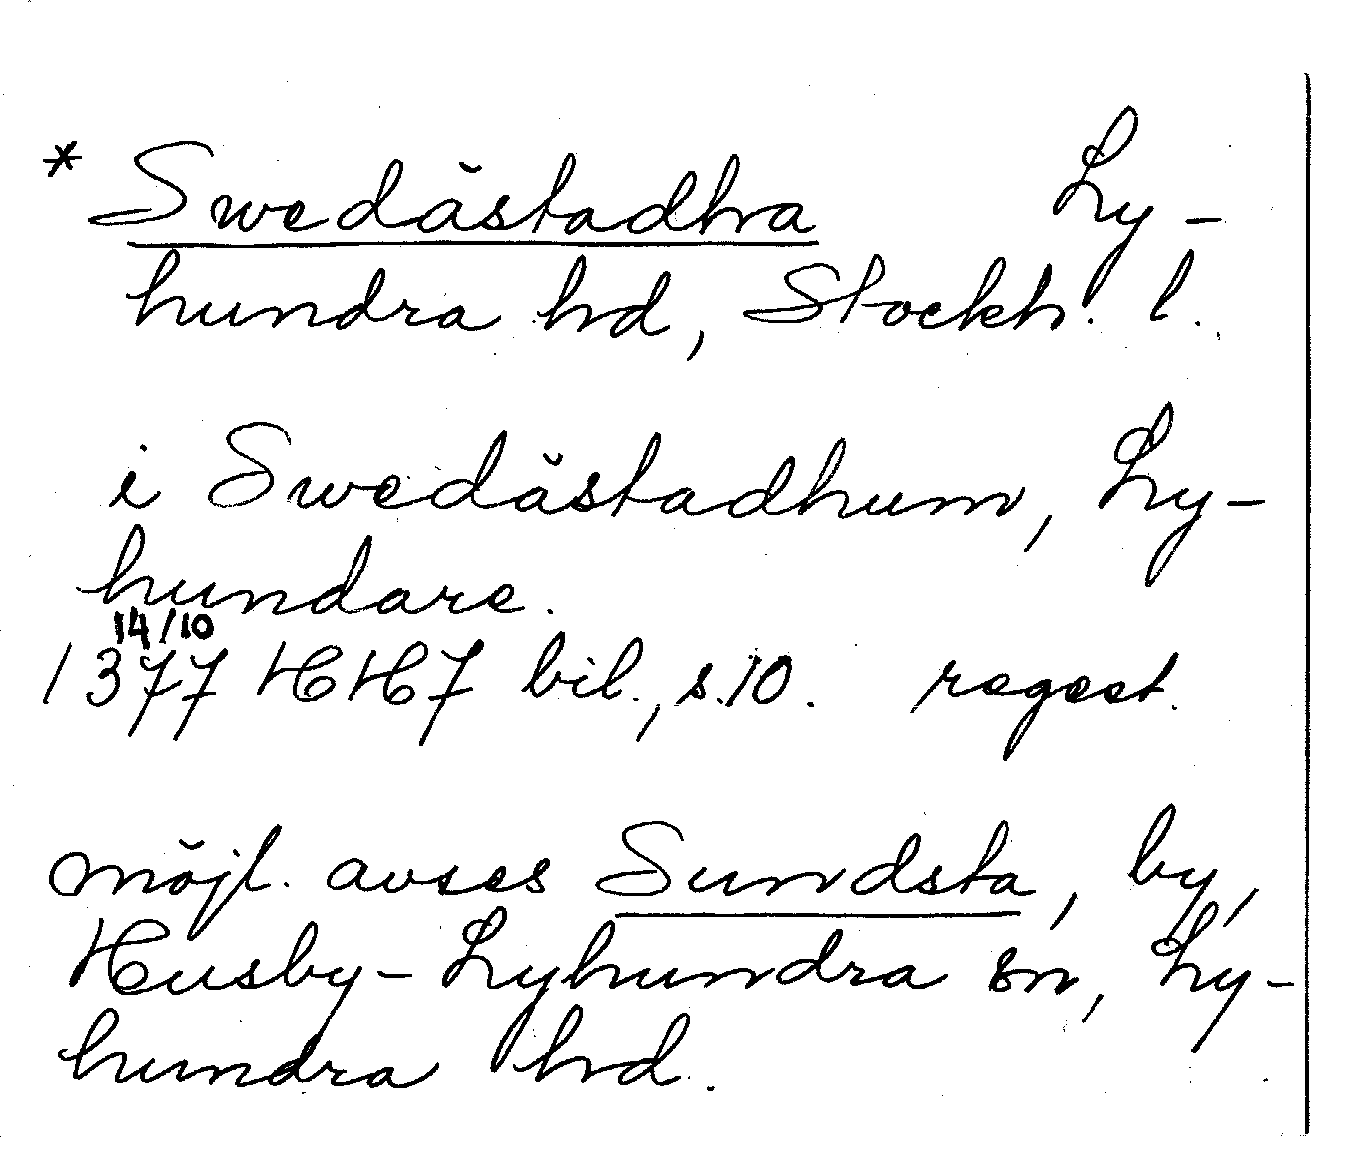 * Swedästadha Ly-
hundra hd, Stockh. l.
i Swedästadhum, Ly-
hundare.
14/10
1377 HH7 bil., s.10. regest.
möjl. avses Sundsta, by,
Husby-Lyhundra sn, Ly-
hundra hd.